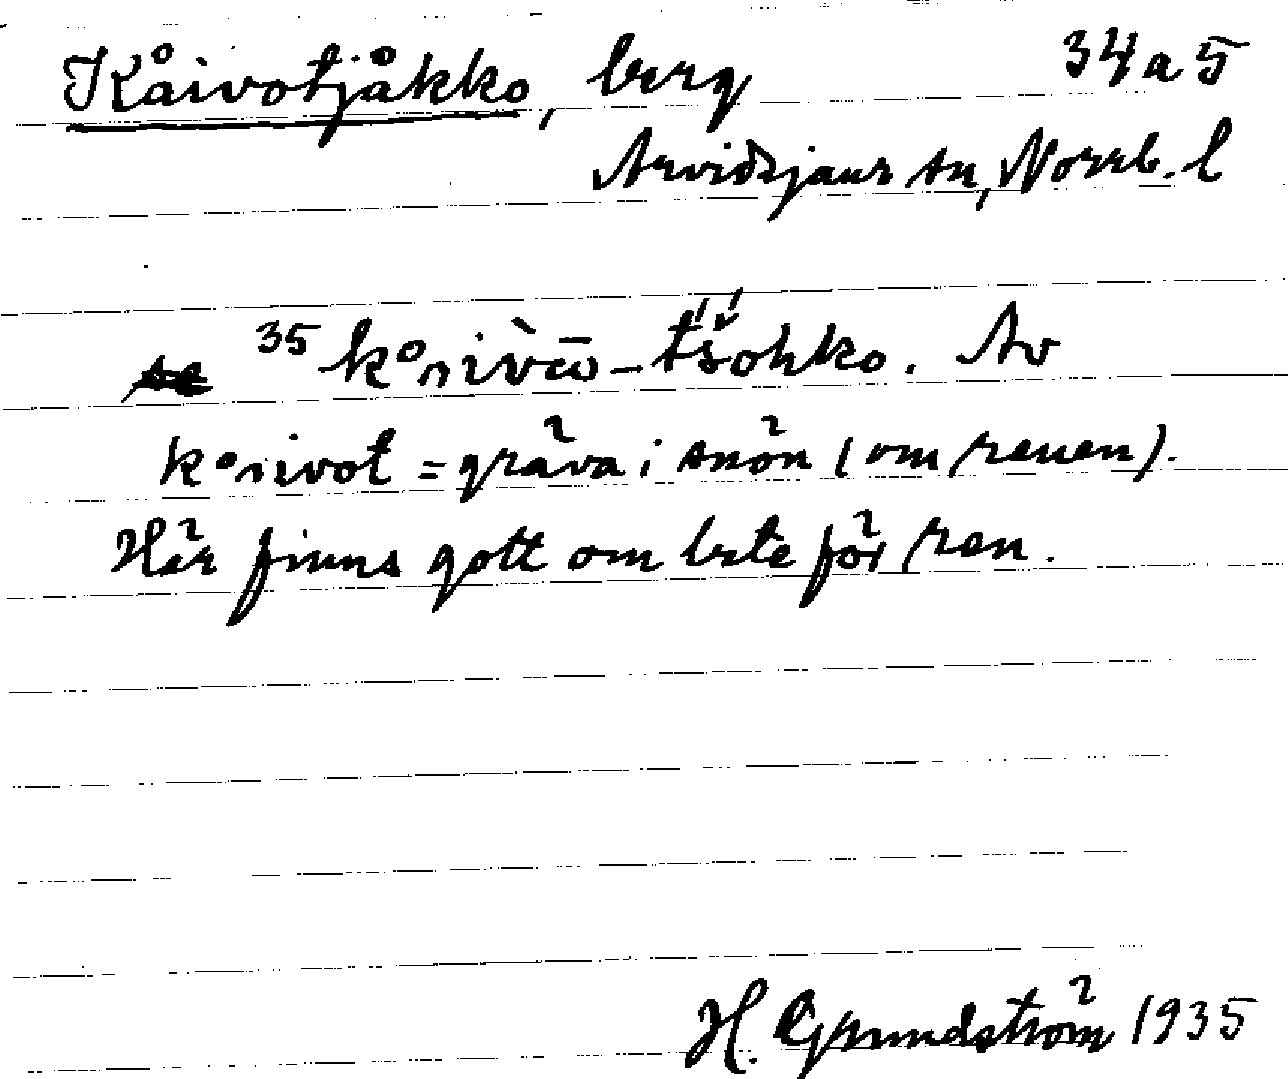 Kåivotjåkko, berg 34 a 5
Arvidsjaurs sn, Norrb. l
35 
Av
= gräva i snön (om renen).
Här finns gott om bete för ren.
H. Grundström 1935